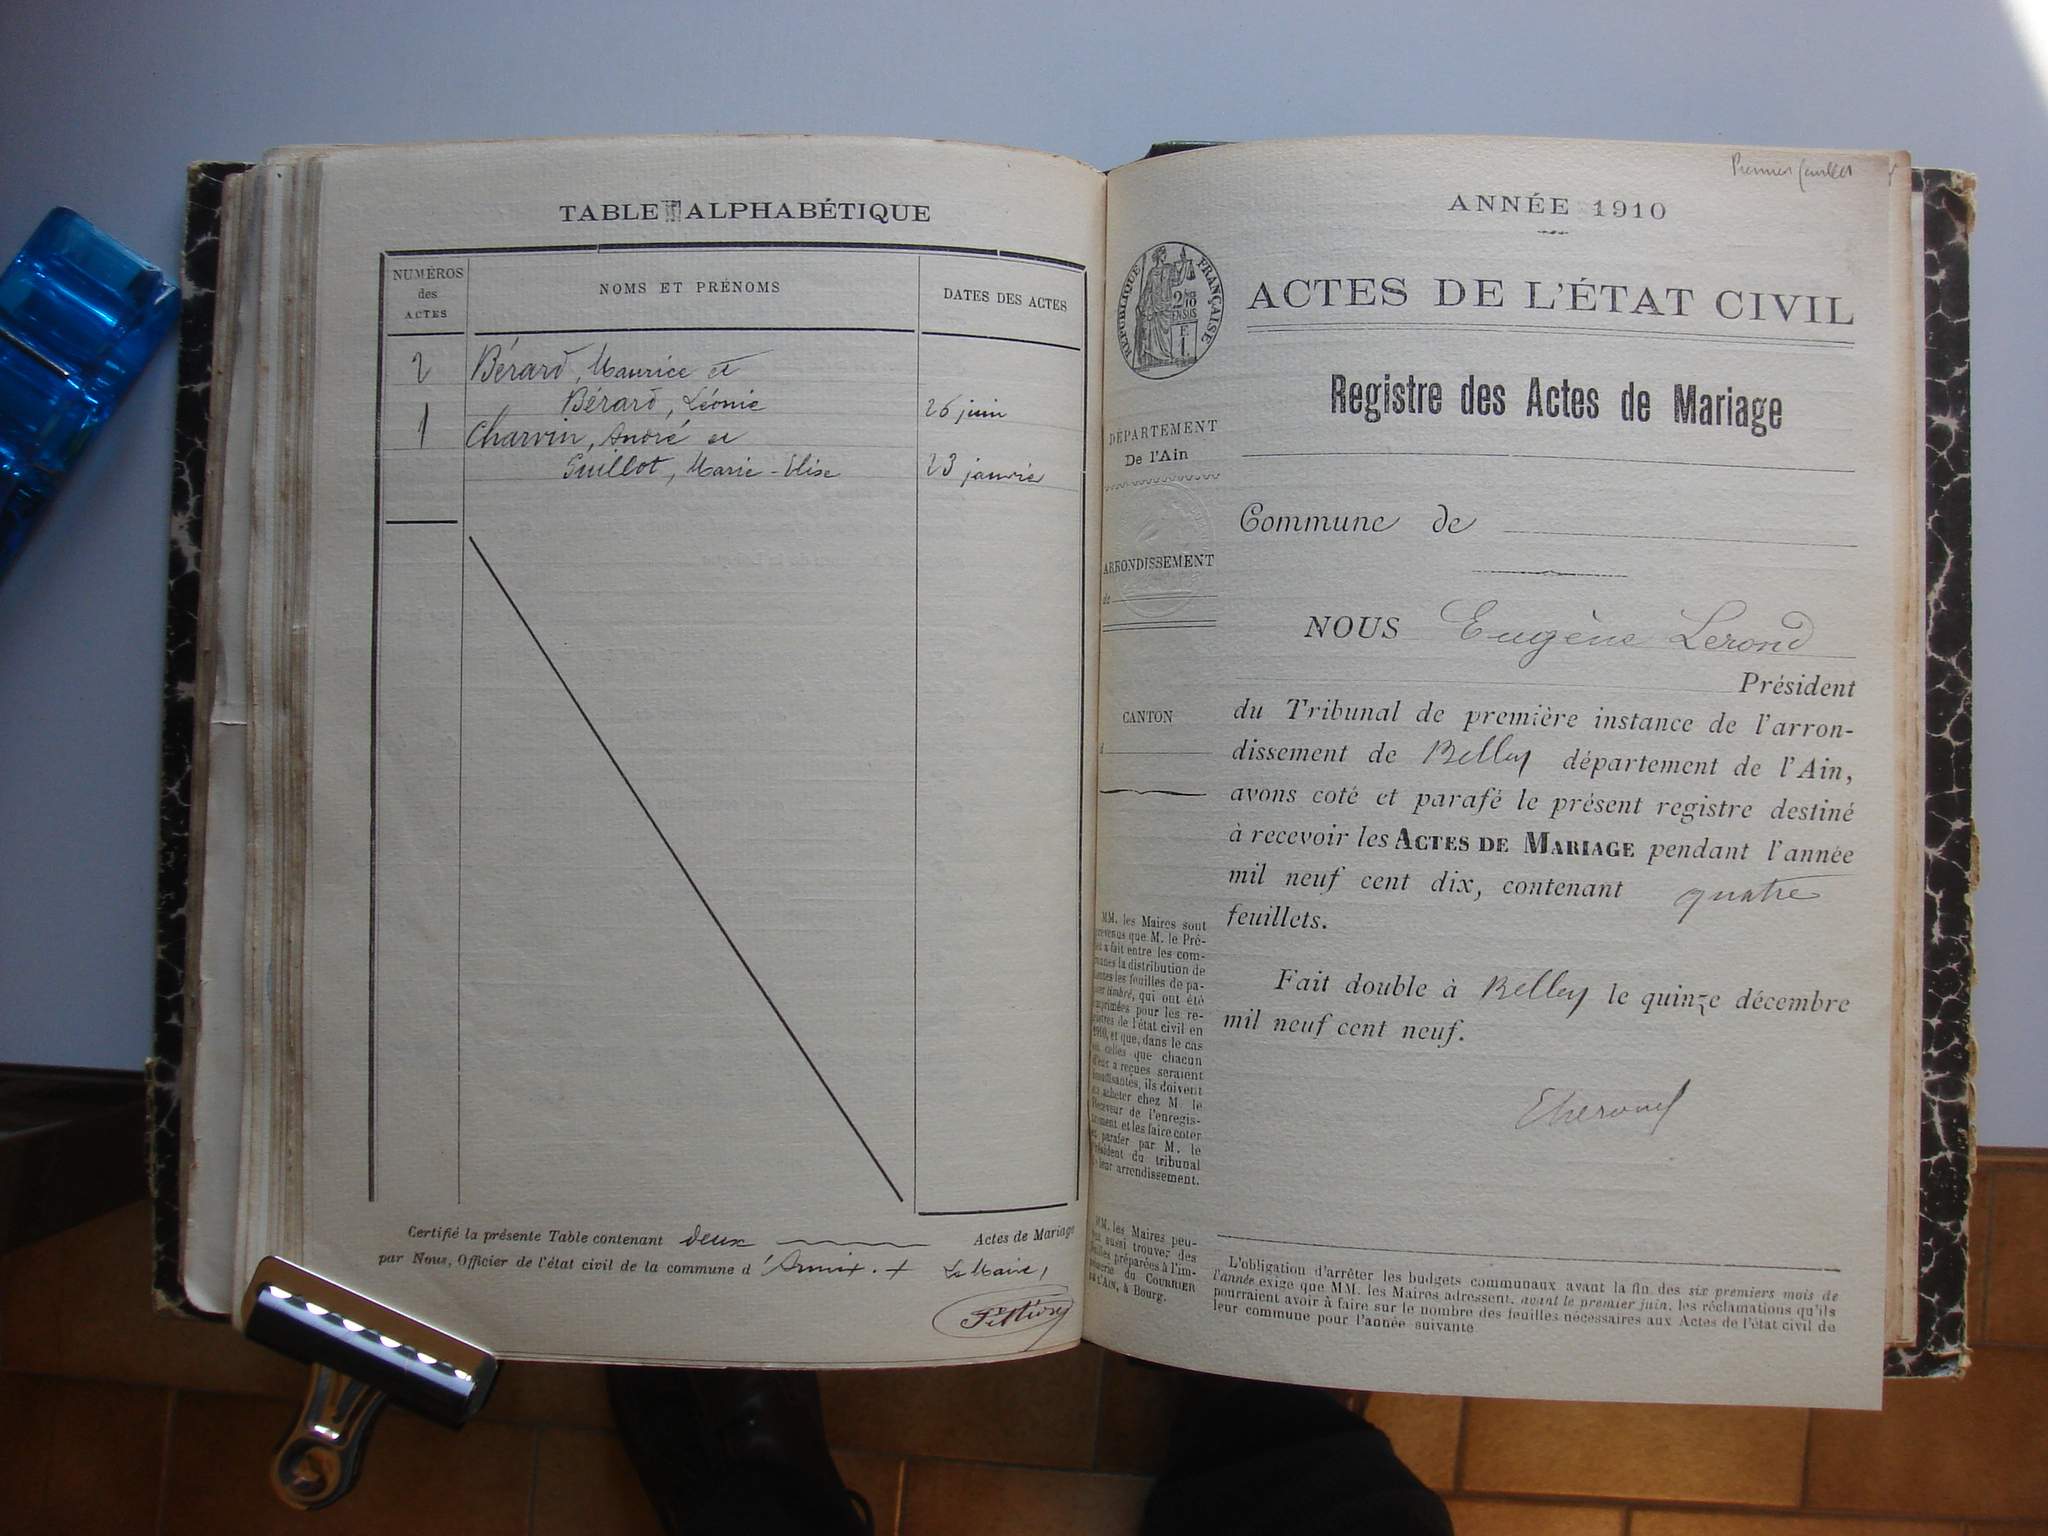 TABLE ALPHABÉTIQUE
NUMÉROS
des
ACTES
NOMS ET PRÉNOMS
DATES DES ACTES
2 Bérard, Maurice et
Bérard, Léonie 26 juin
1 Charvin, André et
Guillot, Marie-Elise 23 janvier
Certifié la présente Table contenant deux Actes de Mariage
par Nous, Officier de l'état civil de la commune d'Armix. Le Maire,
Premier feuillet
ANNÉE 1910
RÉPUBLIQUE FRANÇAISE
ACTES DE L'ÉTAT CIVIL
Registre des Actes de Mariage
DÉPARTEMENT
De l'Ain
Commune de
ARRONDISSEMENT
de
CANTON
d
NOUS Eugène Lerond
Président
du Tribunal de première instance de l'arron-
dissement de Belley département de l'Ain,
avons coté et parafé le présent registre destiné
à recevoir les ACTES DE MARIAGE pendant l'année
mil neuf cent dix, contenant quatre
feuillets.
Fait double à Belley le quinze décembre
mil neuf cent neuf.
MM. les Maires sont
prévenus que M. le Pré-
fet a fait entre les com-
munes la distribution de
toutes les feuilles de pa-
pier timbré, qui ont été
imprimées pour les re-
gistres de l'état civil en
1910, et que, dans le cas
où celles que chacun
d'eux a reçues seraient
insuffisantes, ils doivent
en acheter chez M. le
Receveur de l'enregis-
trement et les faire coter
et parafer par M. le
Président du tribunal
de leur arrondissement.
MM. les Maires peu-
vent aussi trouver des
feuilles préparées à l'im-
primerie du COURRIER
DE L'AIN, à Bourg.
L'obligation d'arrêter les budgets communaux avant la fin des six premiers mois de
l'année exige que MM. les Maires adressent, avant le premier juin, les réclamations qu'ils
pourraient avoir à faire sur le nombre des feuilles nécessaires aux Actes de l'état civil de
leur commune pour l'année suivante